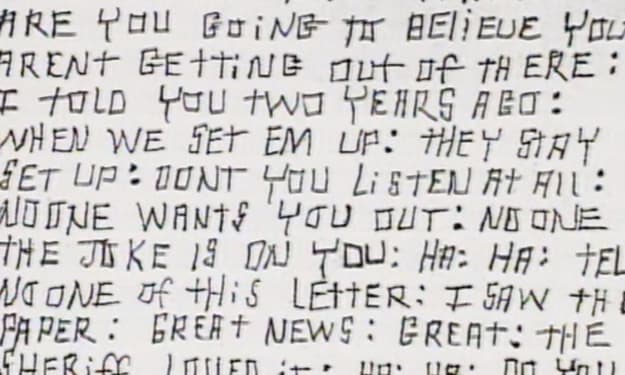 ARE YOU GOiNG TO BELiEVE YOU
ARENT GEttiNG OUt Of tHERE:
I tOLD YOU tWO YEARS AGO:
WHEN WE SET EM UP: tHEY StAY
SET UP: DONT YOU LiStEN At All:
NOONE WANtS YOU OUT: NOONE
THE JOKE IS ON YOU: HA: HA: tEL
NOONE Of tHiS LEttER: I SAW tHE
PAPER: GREAt NEWS: GREAt: tHE
SHERiff LOVED it: HA: HA: DO YOU